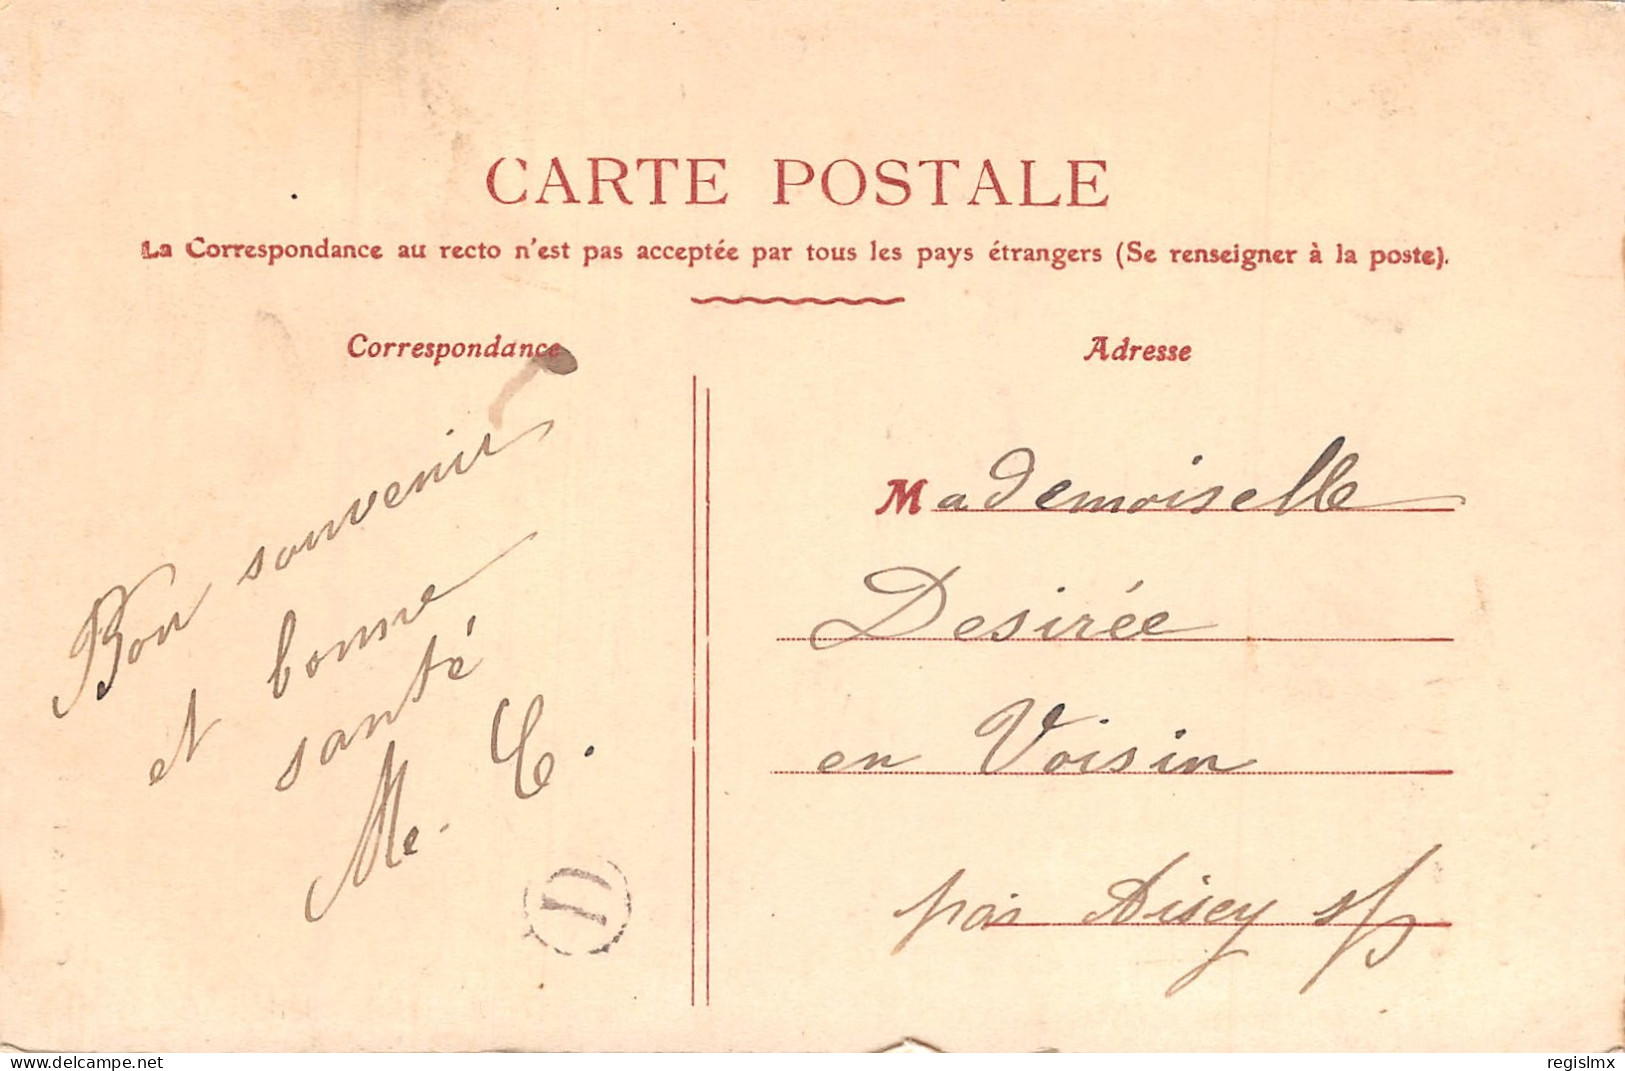 CARTE POSTALE
La Correspondance au recto n'est pas acceptée par tous les pays étrangers (Se renseigner à la poste).
Correspondance
Bon souvenir
et bonne
santé
Me. C.
D
Adresse
Mademoiselle
Desirée
en Voisin
par Aisey s/
delcampe.net
regislmx